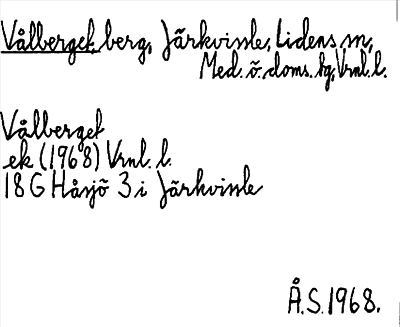 Vålberget, berg, Järkvissle, Lidens sn,
Med. ö. doms. hg, Vrnl. l.
Vålberget
ek (1968) Vrnl. l.
18 G Håsjö 3 i Järkvissle
Å.S. 1968.